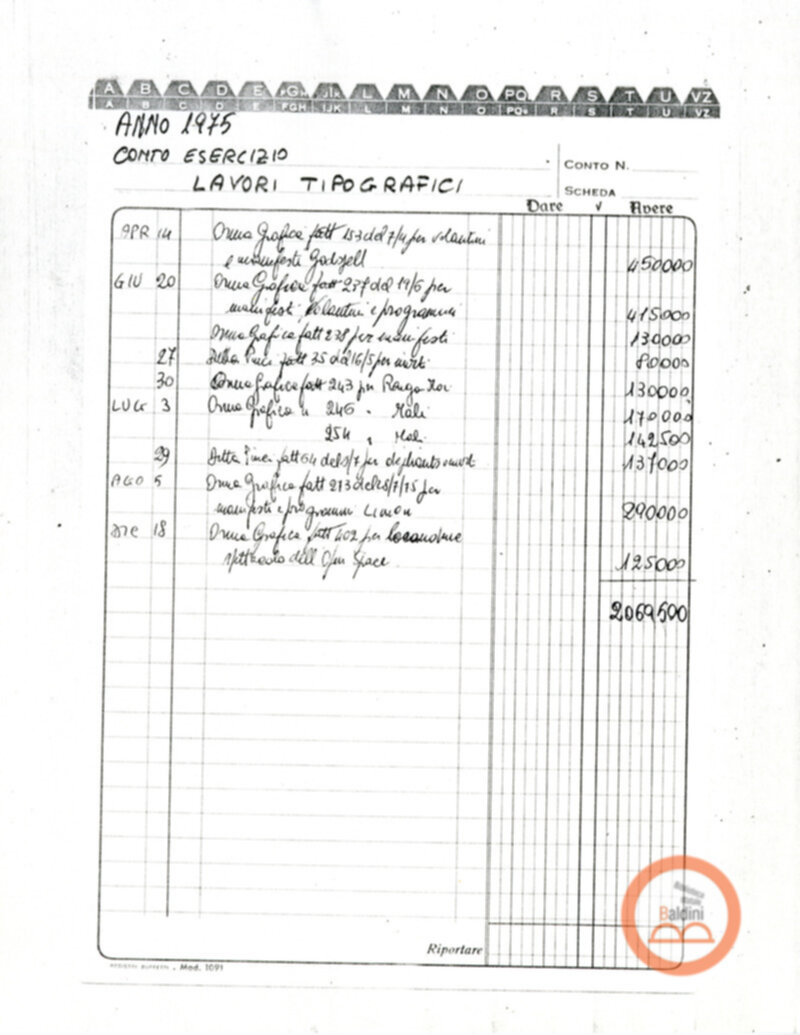 A B C D E FGH IJK L M N O PQ R S T U VZ
A B C D E FGH IJK L M N O PQ R S T U VZ
ANNO 1975
CONTO ESERCIZIO
CONTO N.
LAVORI TIPOGRAFICI
SCHEDA
Dare √ Avere
APR 14 Orma Grafica fatt 153 del 7/4 per volantini
e manifesti Godspell 450000
GIU 20 Orma Grafica fatt 237 del 19/6 per
manifesti, volantini e programmi 415000
Orma Grafica fatt 238 per manifesti 130000
27 Ditta Pinci fatt 35 del 16/5 per 80000
30 Orma Grafica fatt 243 per 130000
LUG 3 Orma Grafica n 246 " Mali 170000
254 " Mali 142500
29 Ditta Pinci fatt 64 del 9/7 per elephants 137000
AGO 5 Orma Grafica fatt 273 del 28/7/75 per
manifesti e programmi Limon 290000
DIC 18 Orma Grafica fatt 402 per locandine
spettacolo dell'Open Space 125000
2069500
Riportare
REGISTRI BUFFETTI . Mod. 1091
Biblioteca
statale
Baldini